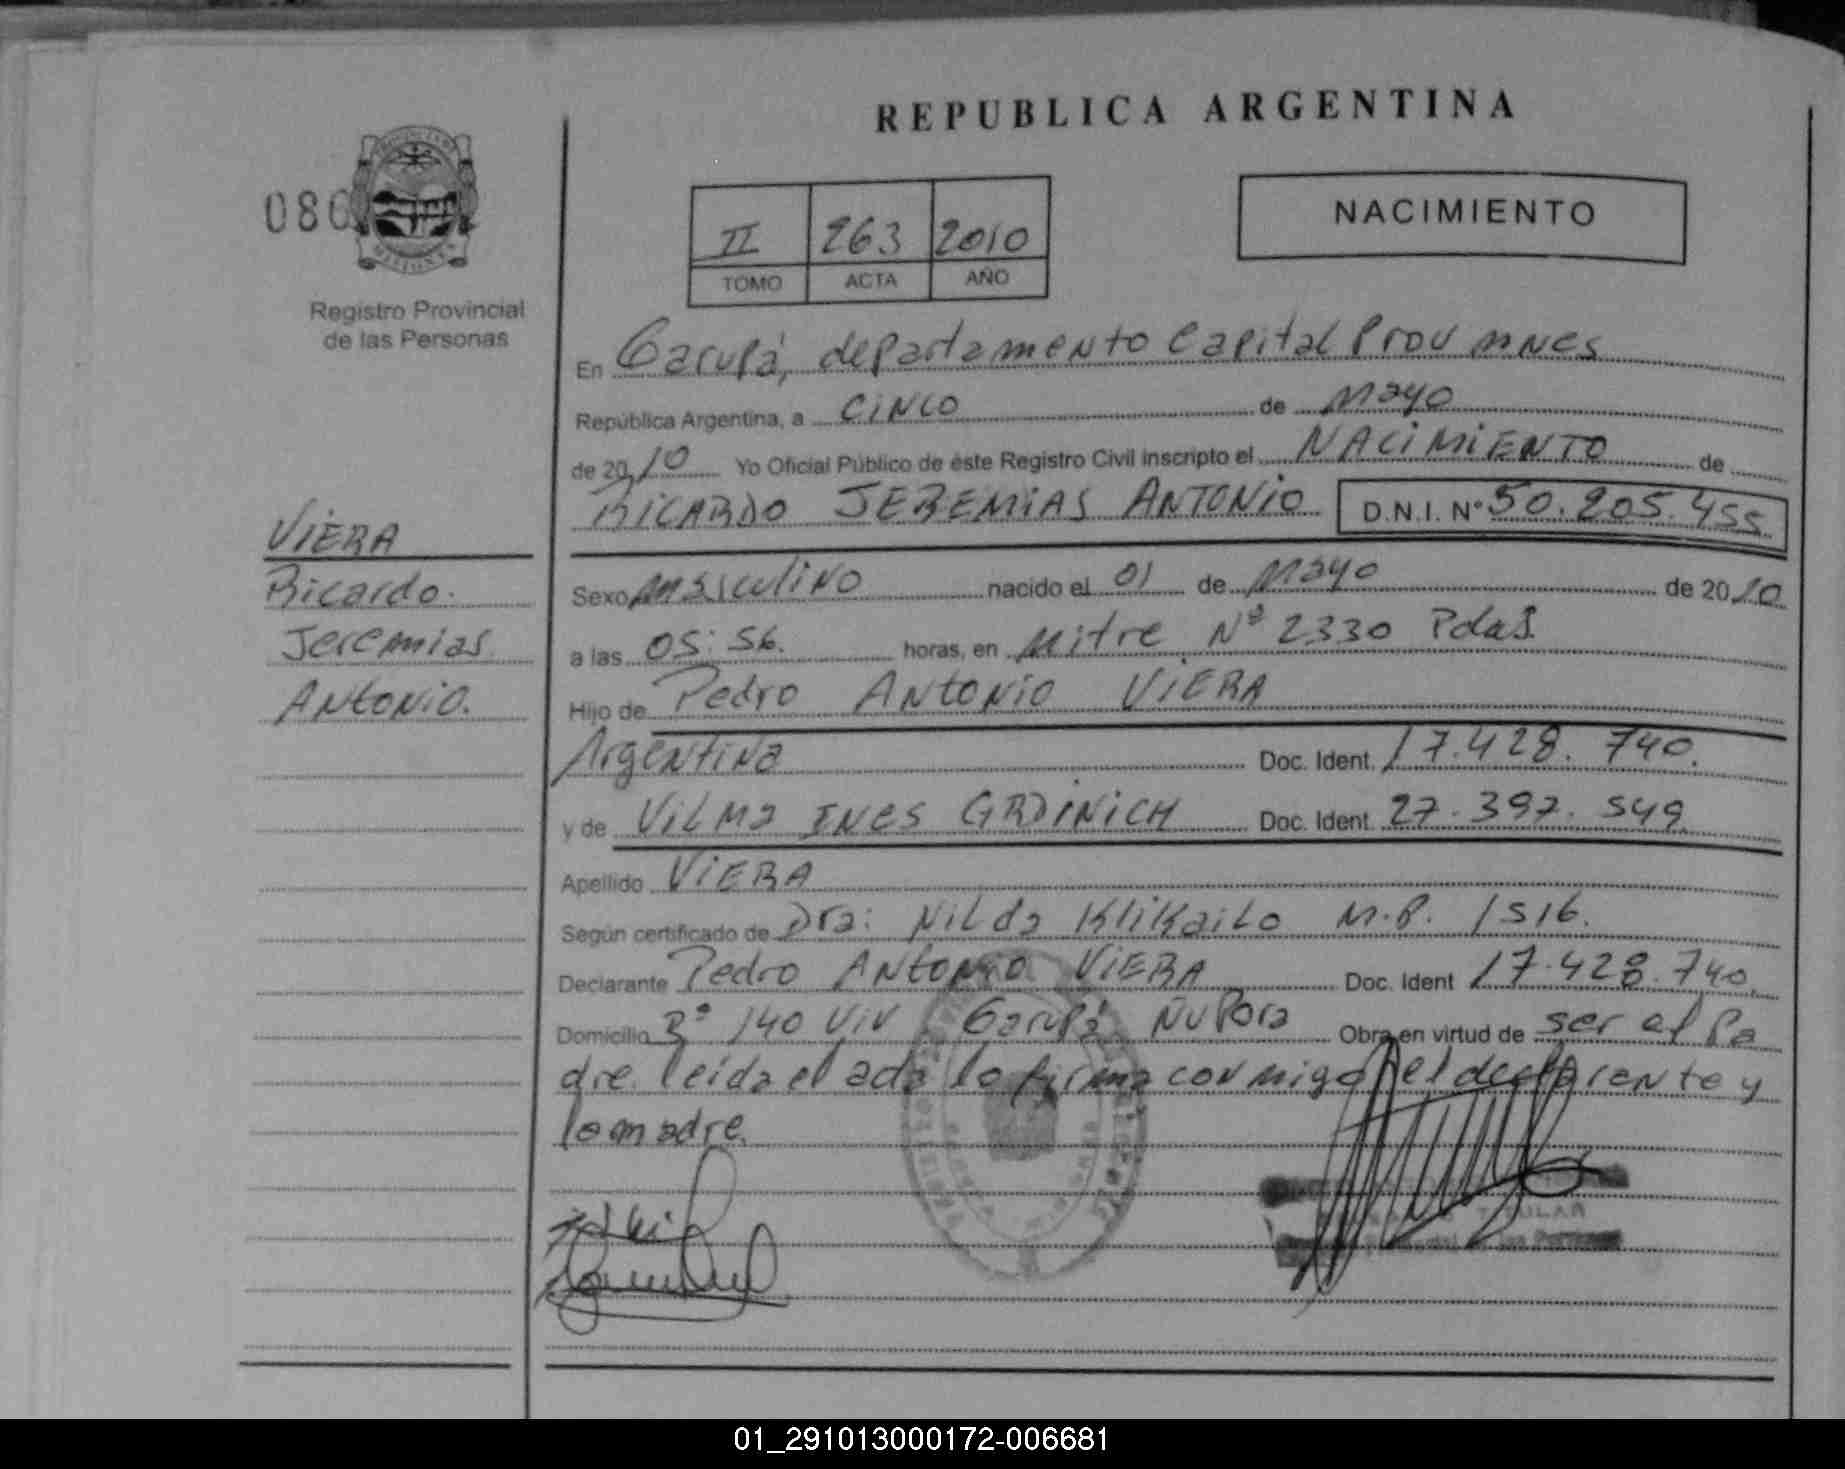 REPUBLICA ARGENTINA
086
NACIMIENTO
II 263 2010
TOMO ACTA AÑO
Registro Provincial
de las Personas
En Garupá, departamento Capital Prov mnes
República Argentina, a cinco de mayo
de 2010 Yo Oficial Público de éste Registro Civil inscripto el NACIMIENTO de
RICARDO JEREMIAS ANTONIO D.N.I. Nº 50.205.455
VIERA
Ricardo.
Jeremias
Antonio.
Sexo masculino nacido el 01 de Mayo de 2010
a las 05:56. horas, en Mitre Nº 2330 Pdas.
Hijo de Pedro Antonio VIERA
Argentina Doc. Ident. 17.428.740.
y de Vilma Ines GRDINICH Doc. Ident. 27.397.549
Apellido VIERA
Según certificado de Dra: Nilda Klikailo M.P. 1516.
Declarante Pedro Antonio VIERA Doc. Ident 17.428.740
Domicilio Bº 140 Viv Garupá Ñu Pora Obra en virtud de ser el Pa
dre. leida el acta lo firma conmigo el declarante y
la madre.
TITULAR
01_291013000172-006681